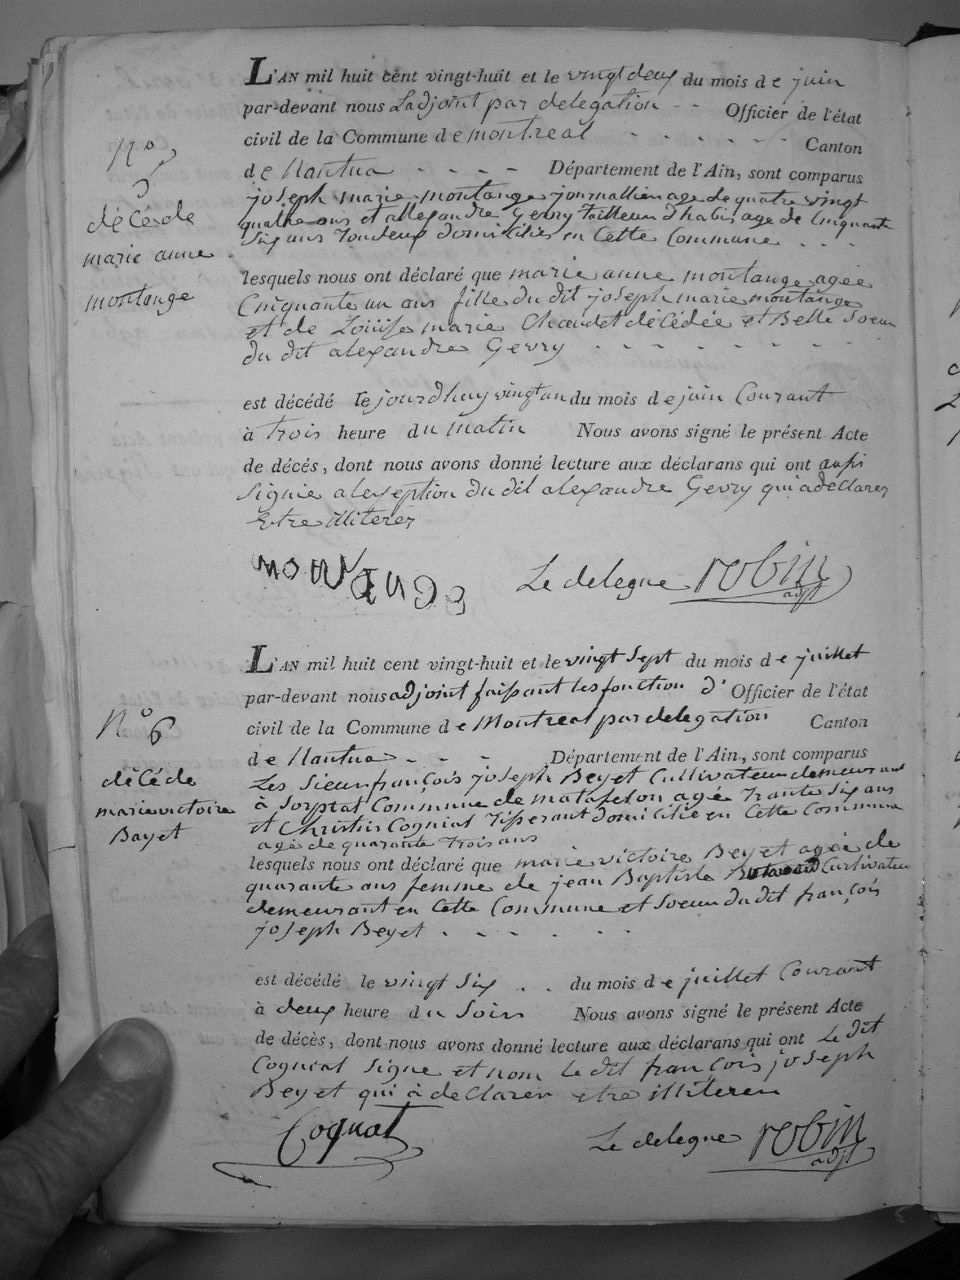 L'AN mil huit cent vingt-huit et le vingt deux du mois de juin
par-devant nous Ladjoint par delegation - - Officier de l'état
civil de la Commune de montreal - - - - - - Canton
de Nantua - - - - Département de l'Ain, sont comparus
joseph marie montange journallien age de quatre vingt
quattre ans et allexandre Gevry Tailleur d'habis age de Cinquante
Six ans Tousdeux domicilies en Cette Commune - - -
lesquels nous ont déclaré que marie anne montange agée
Cinquante un ans fille du dit joseph marie montange
et de Louise marie Chaudet décédée et Belle Soeur
du dit alexandre Gevry - - - - - - - -
est décédé le jourdhuy vingt un du mois de juin Courant
à trois heure du matin Nous avons signé le présent Acte
de décés, dont nous avons donné lecture aux déclarans qui ont aussi
Signée a lexseption du dit alexandre Gevry qui a declarer
Etre illiterer
Nº 5
décés de
marie anne
montange
montange
Le delegue robin
adjt
L'AN mil huit cent vingt-huit et le vingt Sept du mois de juillet
par-devant nous adjoint faissant les fonction d' Officier de l'état
civil de la Commune de Montreal par delegation Canton
de Nantua - - - Département de l'Ain, sont comparus
Les Sieur françois joseph Beyet Cultivateur demeurant
à Sorptat Commune de matafelon agée Trante Six ans
et Christin Cogniat Tisserant domicilié en Cette Commune
agé de quarante Trois ans
lesquels nous ont déclaré que marie victoire Beyet agée de
quarante ans femme de jean Baptiste Cultivateur
demeurant en Cette Commune et Soeur du dit françois
joseph Beyet - - - - - -
est décédé le vingt Six - - du mois de juillet Courant
à deux heure du Soir Nous avons signé le présent Acte
de décés, dont nous avons donné lecture aux déclarans qui ont Le dit
Cogniat Signe et nom le dit françois joseph
Beyet qui à declarer etre illiterer
Nº 6
décé de
marie victoire
Bayet
Cognat
Le delegue robin
adjt